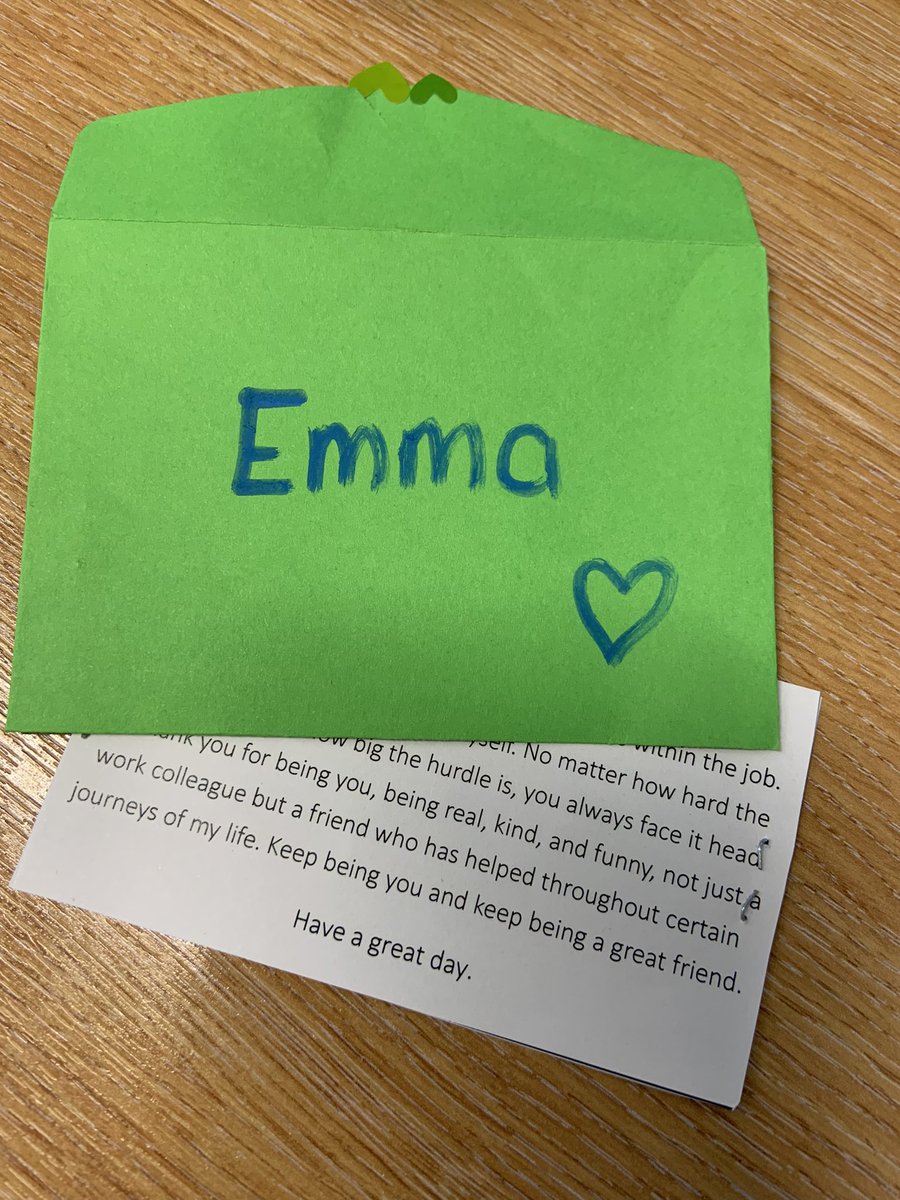 Emma
within the job.
No matter how hard the
big the hurdle is, you always face it head
you for being you, being real, kind, and funny, not just a
work colleague but a friend who has helped throughout certain
journeys of my life. Keep being you and keep being a great friend.
Have a great day.